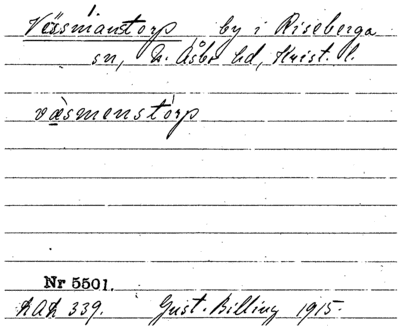 Väsmantorp, by i Riseberga
sn, N. Åsbo hd, Krist. l.
væ̀smenstórp
Nr 5501.
LAL 339. Gust. Billing 1915.